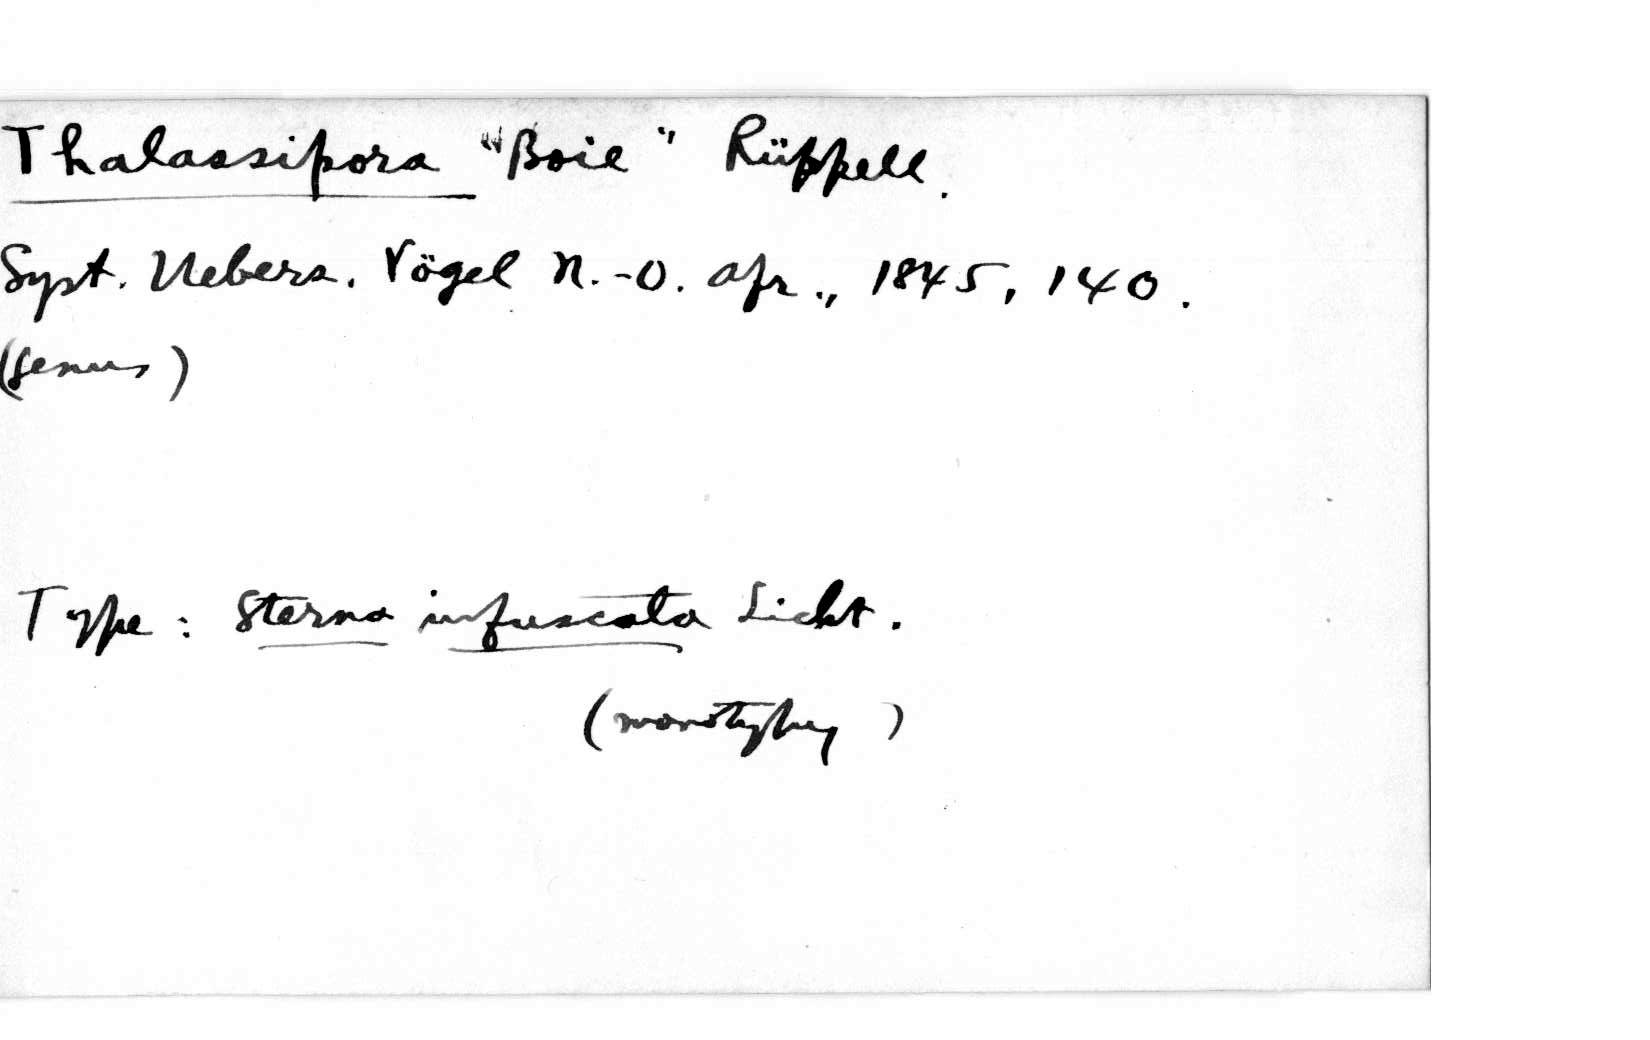 Thalassipora "Boie" Rüppell.
Syst. Uebers. Vögel N.-O. Afr., 1845, 140.
(genus)
Type: Sterna infuscata Licht.
(monotypy)